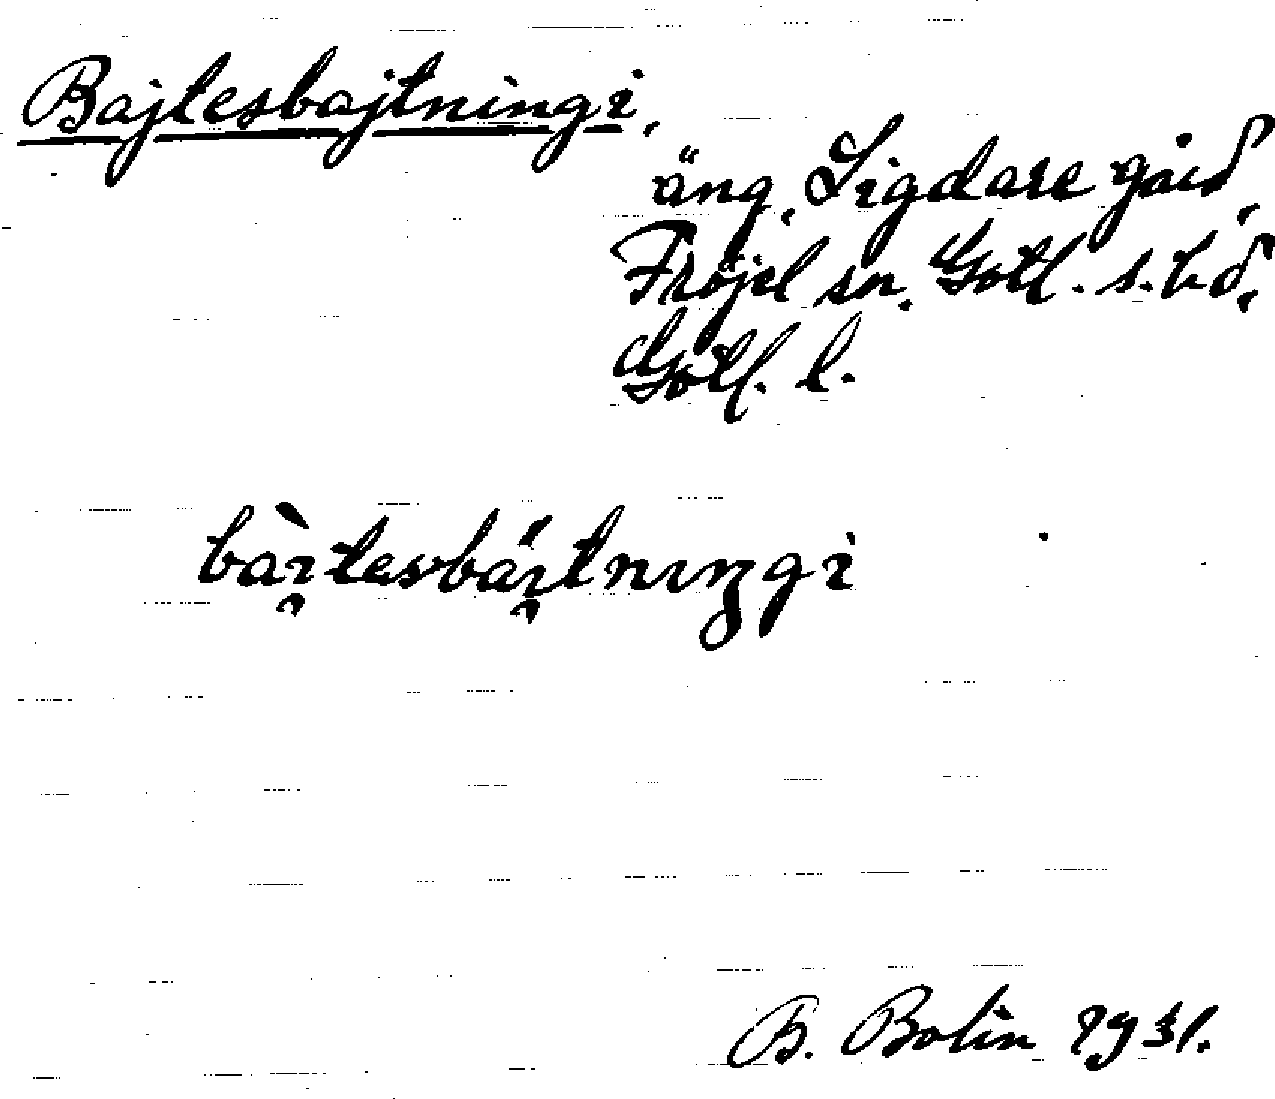 Bajtesbajtningi,
äng, Sigdare gård,
Fröjel sn. Gotl. s. hd.
Gotl. l.
bàı̯tesbäı̯tnıŋgi
B. Bolin 1931.